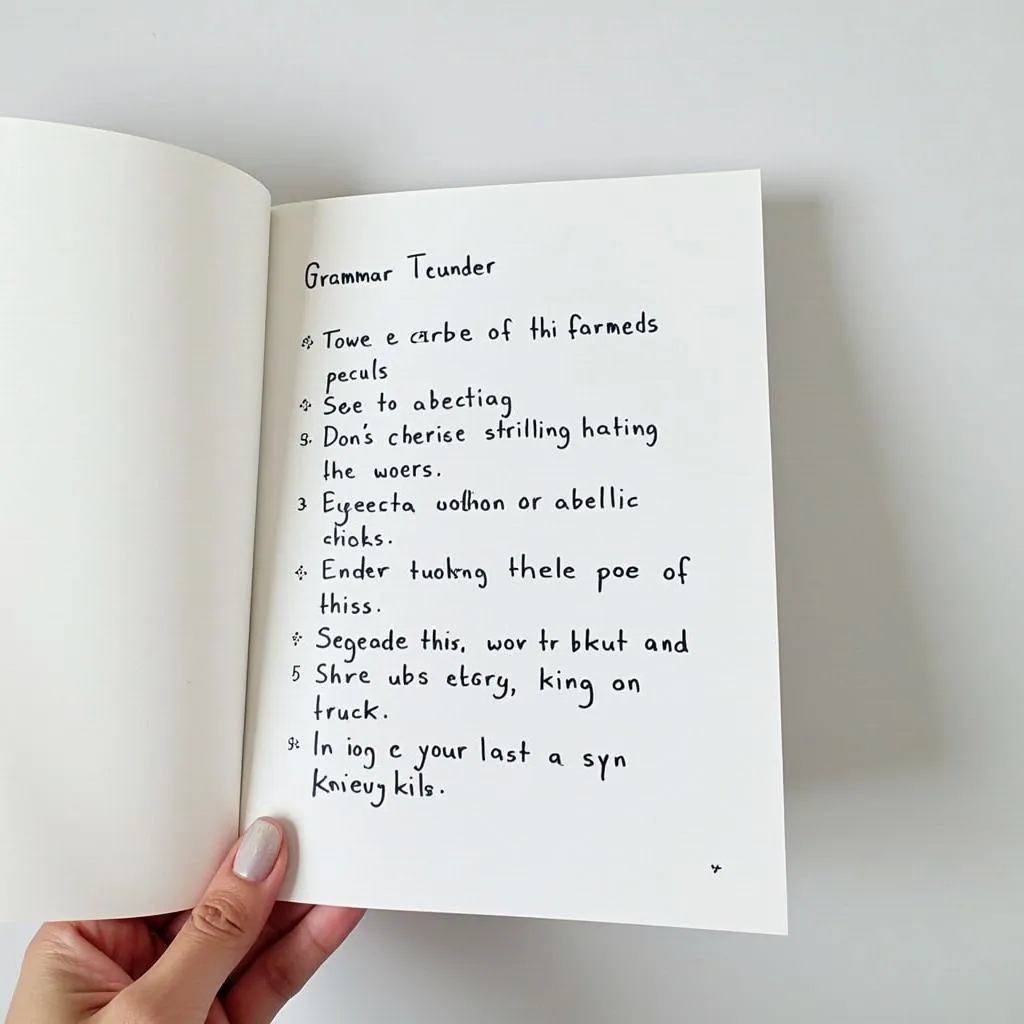 Grammar Tcunder
Towe e carbe of thi farmeds
peculs
See to abectiag
9. Don's cherise strilling hating
the woers.
3 Eyeecta or abellic
chioks.
Ender thele poe of
thiss.
Segeade this, wov tr bkut and
5 Shre ubs etcry, king on
truck.
In iog e your last a syn
Knievy kils.